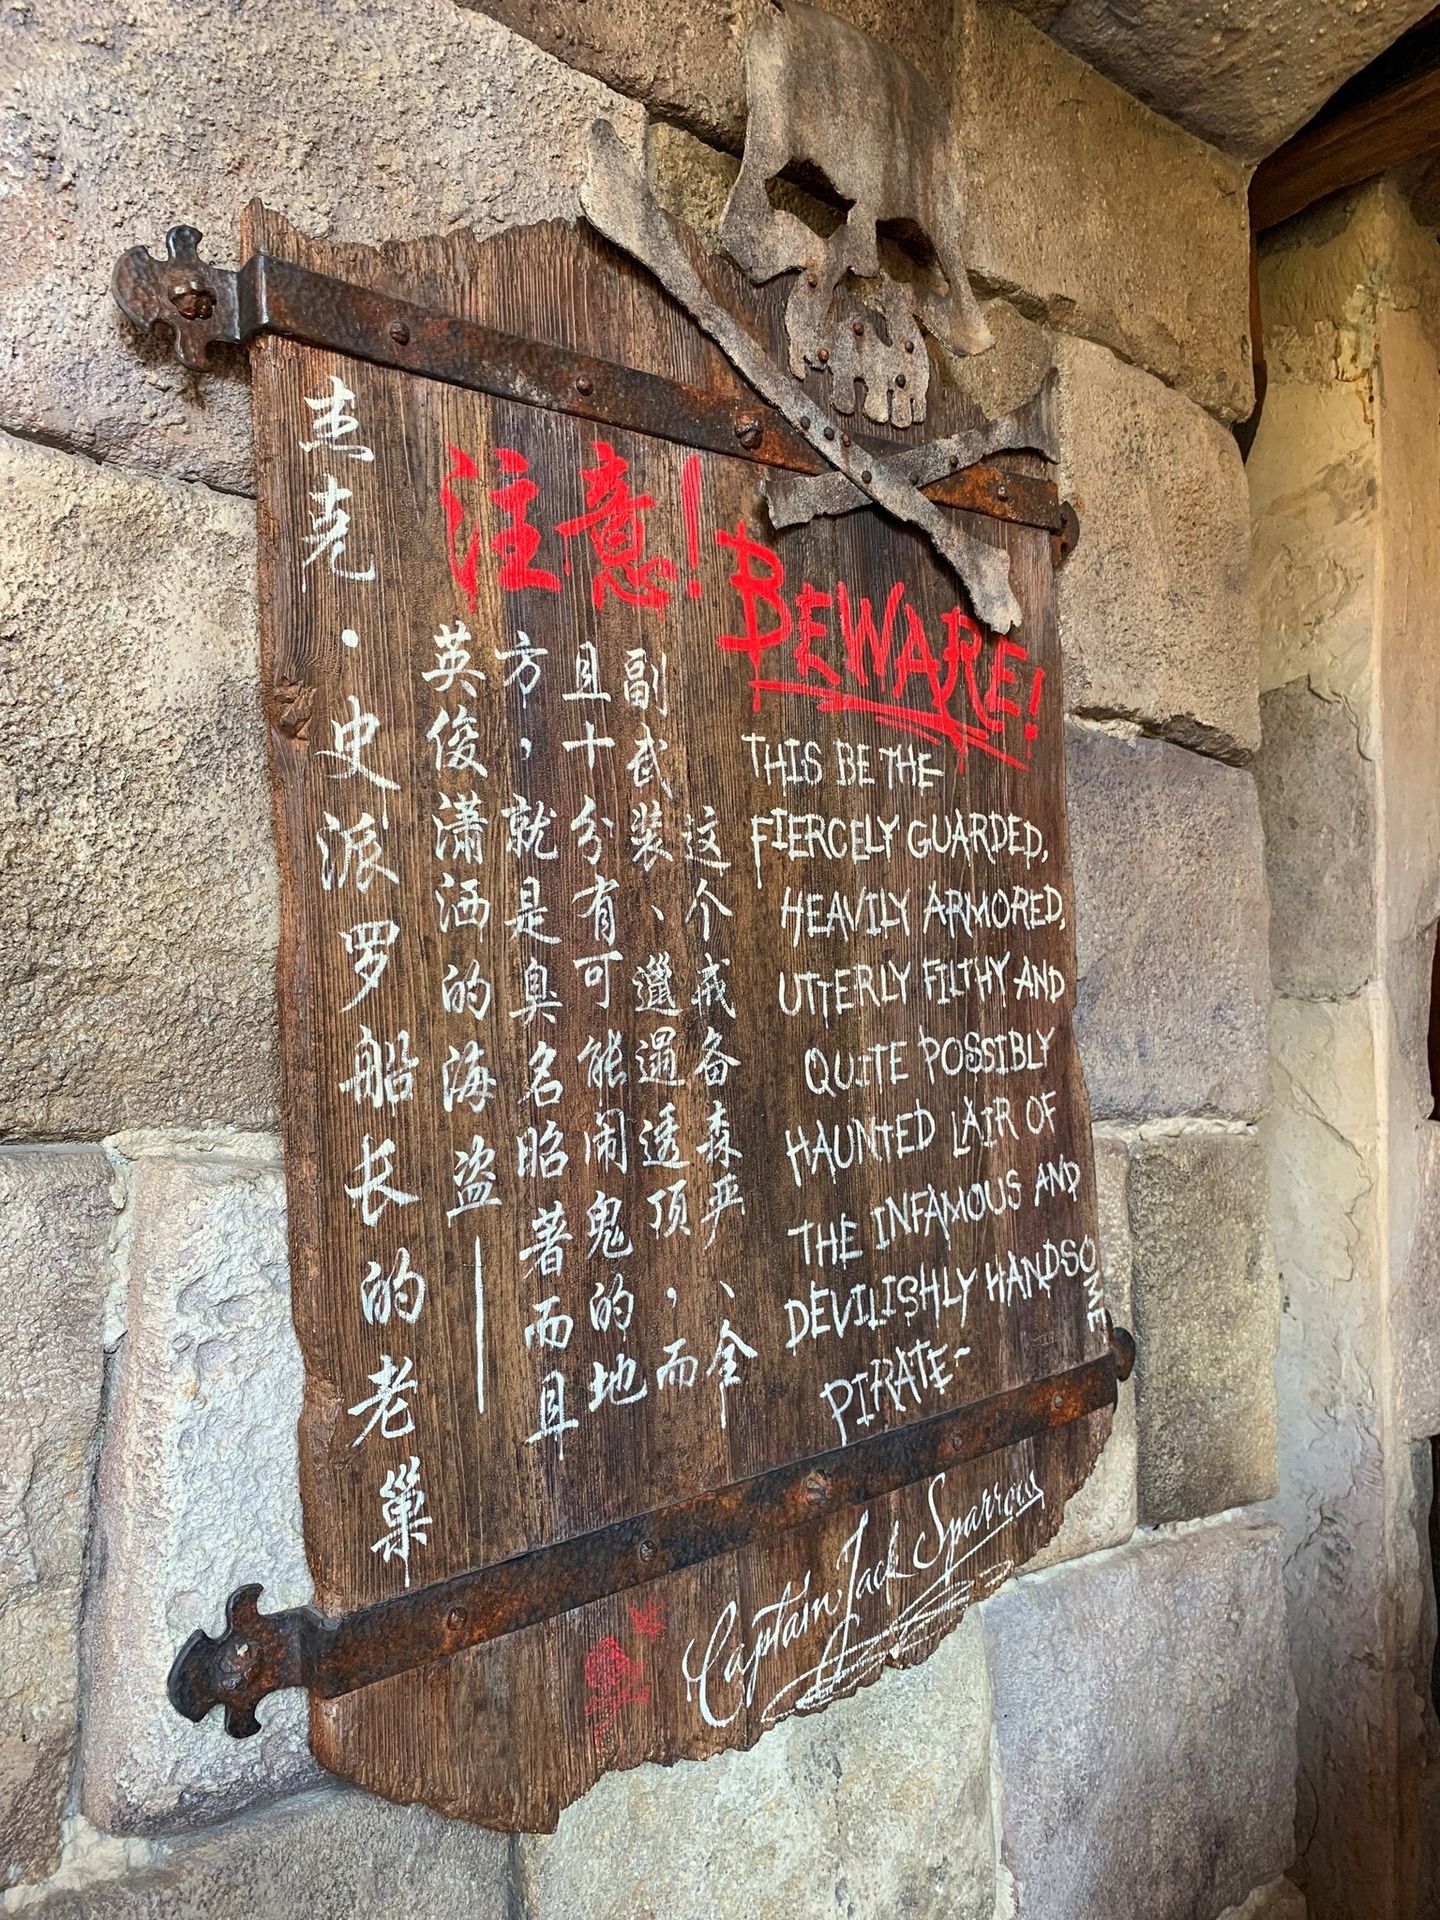 注意!
这个戒备森严、全
副武装、邋遢透顶,而
且十分有可能闹鬼的地
方,就是臭名昭著而且
英俊潇洒的海盗——
杰克·史派罗船长的老巢
BEWARE!
THIS BE THE
FIERCELY GUARDED,
HEAVILY ARMORED,
UTTERLY FILTHY AND
QUITE POSSIBLY
HAUNTED LAIR OF
THE INFAMOUS AND
DEVILISHLY HANDSOME
PIRATE~
Captain Jack Sparrow